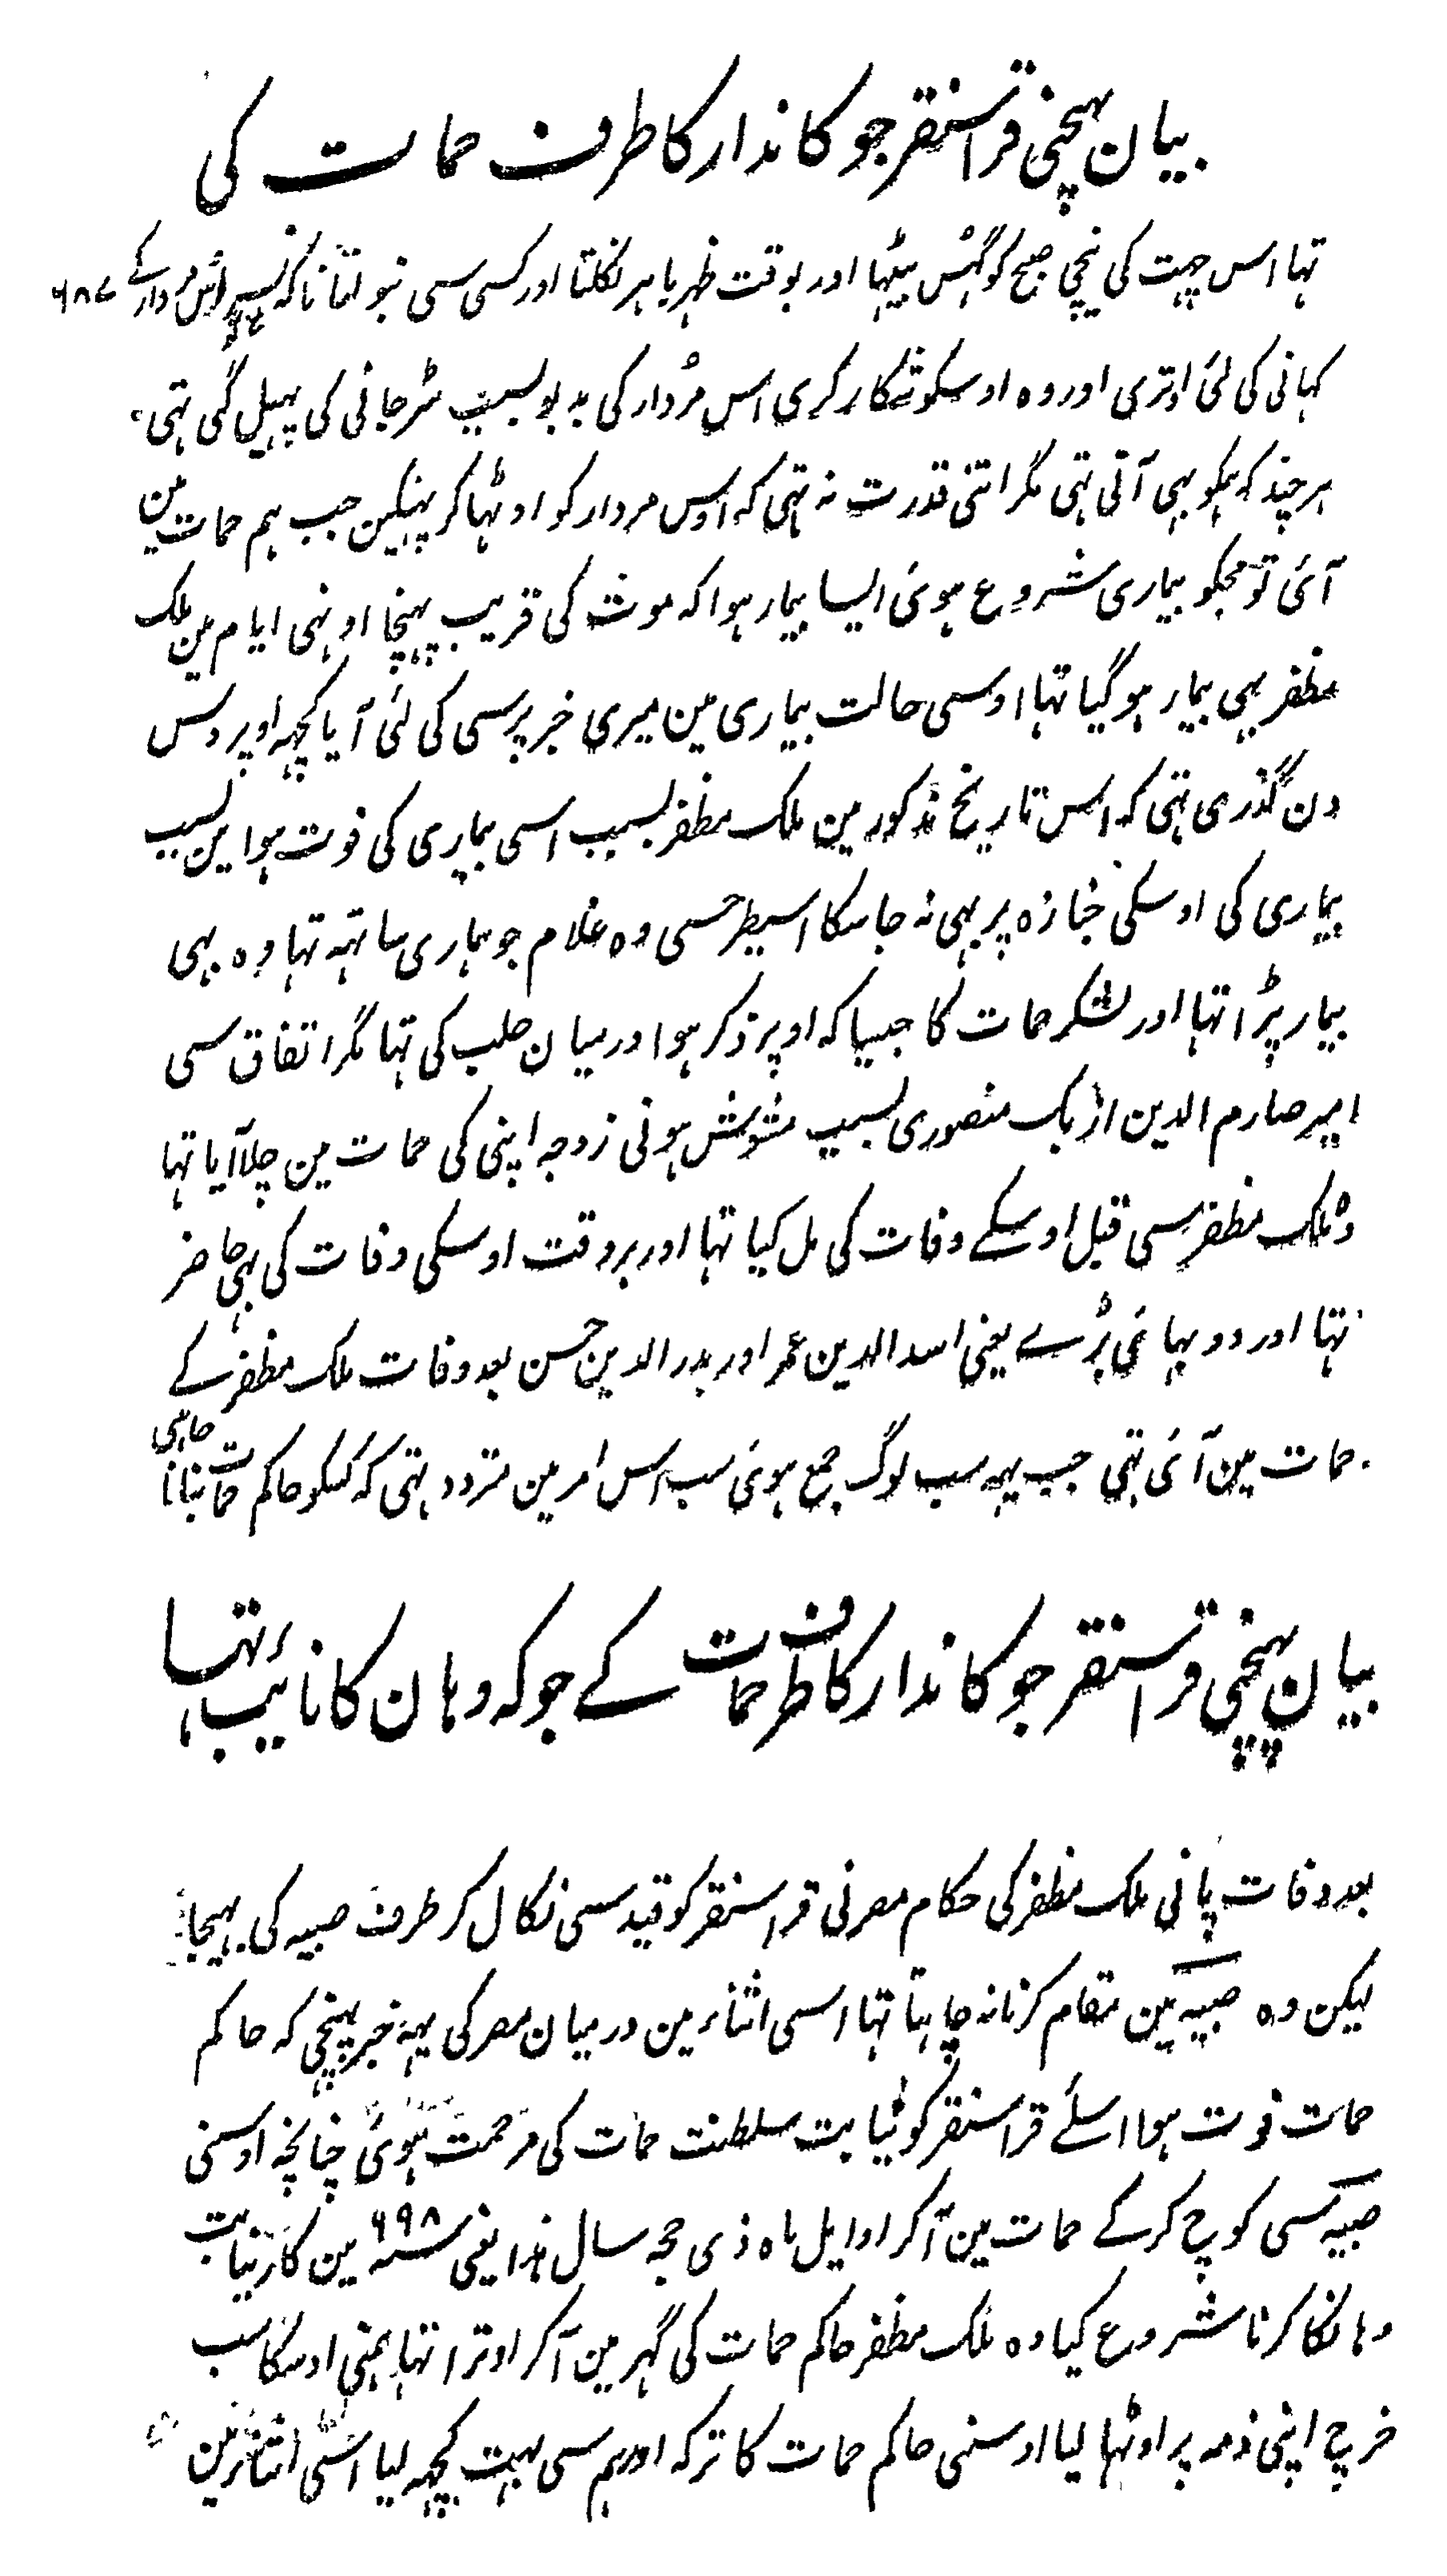 بیان پہنچی قراسنقر جو کاندار کا طرف حمات کی
تہا اس چہت کی نیچی صبح کو گہس بیٹہا اور بوقت ظہر باہر نکلتا اور کسی سی نبولتا تاکہ نسر اس مردار کے
کہانی کی لئ اوتری اور وہ اوسکو شکار کری اس مردار کی بدبو بسبب سڑجانی کی پہیل گی تہی
ہر چند کہ ہمکو بہی آتی تہی مگر اتنی قدرت نہ تہی کہ اوس مردار کو اوٹہا کر پہنیکین جب ہم حمات مین
آئ تو مجکو بیماری شروع ہوئ ایسا بیمار ہوا کہ موت کی قریب پہنچا اونہی ایام مین ملک
مظفر بہی بیمار ہوگیا تہا اوسی حالت بیماری مین میری خبر پرسی کی لئ آیا کچہہ اوپر دس
دن گذری تہی کہ اس تاریخ مذکور مین ملک مظفر بسبب اسی بیماری کی فوت ہوا مین بسبب
بیماری کی اوسکی جنازہ پر بہی نہ جاسکا اسیطرحسی وہ غلام جو ہماری ساتہہ تہا وہ بہی
بیمار پڑا تہا اور لشکر حمات کا جیسا کہ اوپر ذکر ہوا درمیان حلب کی تہا مگر اتفاق سی
امیر صارم الدین ازبک منصوری بسبب مشوش ہونی زوجہ اپنی کی حمات مین چلا آیا تہا
وہ ملک مظفر سی قبل اوسکے وفات کی مل گیا تہا اور بروقت اوسکی وفات کی بہی حاضر
تہا اور دو بہائی بڑے یعنی اسد الدین عمر اور بدر الدین حسن بعد وفات ملک مظفر کے
حمات مین آئ تہی جب یہہ سب لوگ جمع ہوئ سب اس امر مین متردد تہی کہ کسکو حاکم حمات بنانا چاہئی
بیان پہنچی قراسنقر جو کاندار کا طرف حمات کے جو کہ وہان کا نایب تہا
بعد وفات پانی ملک مظفر کی حکام مصر نی قراسنقر کو قید سی نکال کر طرف صبیہ کی بہیجا
لیکن وہ صبیہ مین مقام کرنا نہ چاہتا تہا اسی اثناء مین درمیان مصر کی یہہ خبر پہنچی کہ حاکم
حمات فوت ہوا اسلئے قراسنقر کو نیابت سلطنت حمات کی مرحمت ہوئ چنانچہ اوسنی
صبیہ سی کوچ کرکے حمات مین آکر اوایل ماہ ذی حجہ سال ہذا یعنی سنہ ۶۹۸ مین کار نیابت
وہانکا کرنا شروع کیا وہ ملک مظفر حاکم حمات کی گہر مین آکر اوترا تہا ہمنی اوسکا سب
خرچ اپنی ذمہ پر اوٹہا لیا اوسنی حاکم حمات کا ترکہ اور ہم سی بہت کچہہ لیا اسی اثناء مین